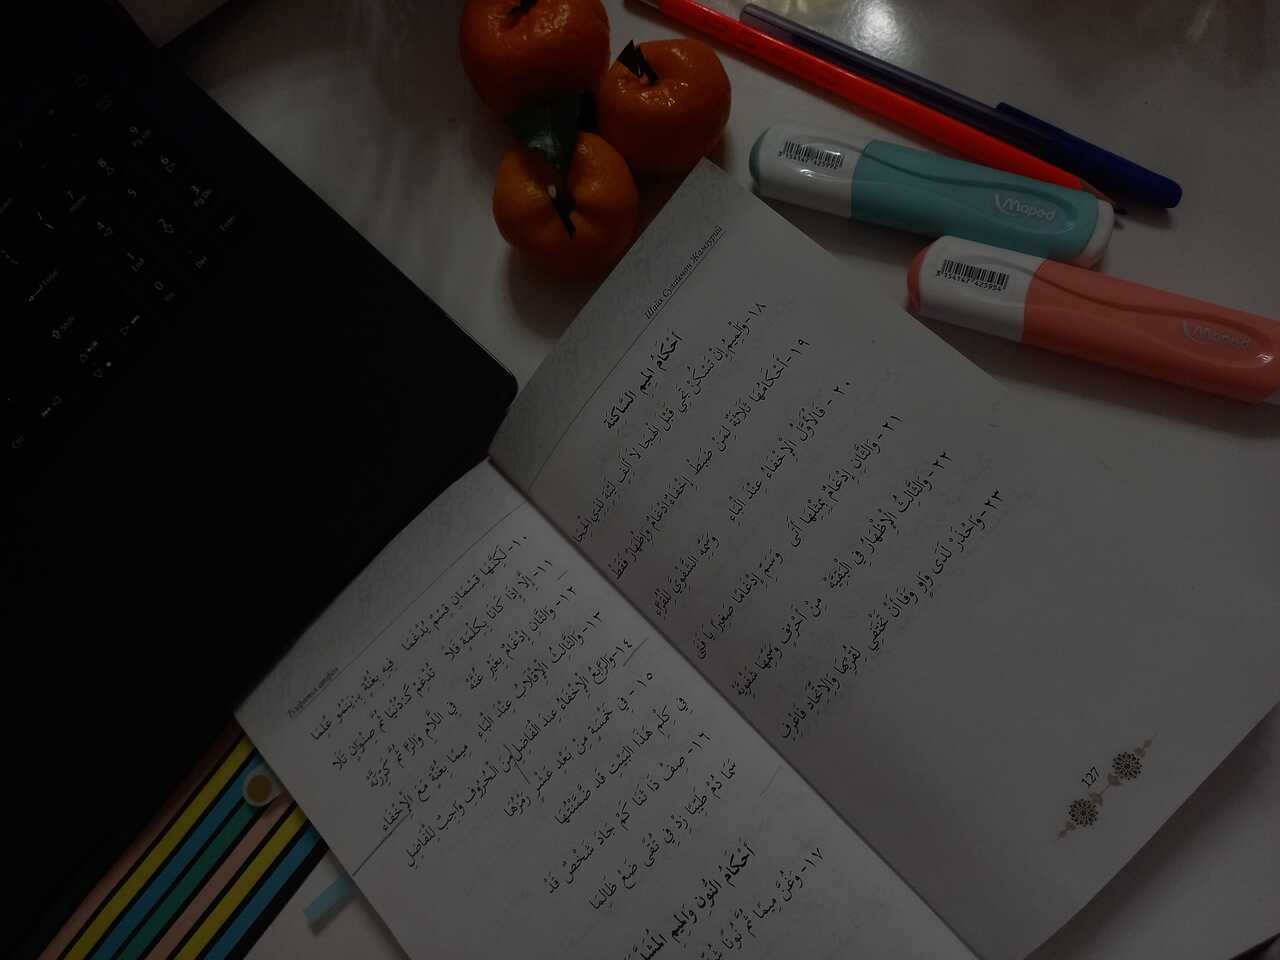 ١٠- لَكِنَّهَا قِسْمَانِ قِسْمٌ يُدْغَمَا فِيهِ بِغُنَّةٍ بِيَنْمُو عُلِمَا
١١- إِلَّا إِذَا كَانَا بِكِلْمَةٍ فَلَا تُدْغِمْ كَدُنْيَا ثُمَّ صِنْوَانٍ تَلَا
١٢- وَالثَّانِ إِدْغَامٌ بِغَيْرِ غُنَّهْ فِي اللَّامِ وَالرَّا ثُمَّ كَرِّرَنَّهْ
١٣- وَالثَّالِثُ الْإِقْلَابُ عِنْدَ الْبَاءِ مِيمًا بِغُنَّةٍ مَعَ الْإِخْفَاءِ
١٤- وَالرَّابِعُ الْإِخْفَاءُ عِنْدَ الْفَاضِلِ مِنَ الْحُرُوفِ وَاجِبٌ لِلْفَاضِلِ
١٥- فِي خَمْسَةٍ مِنْ بَعْدِ عَشْرٍ رَمْزُهَا
فِي كِلْمِ هَذَا الْبَيْتِ قَدْ ضَمَّنْتُهَا
١٦- صِفْ ذَا ثَنَا كَمْ جَادَ شَخْصٌ قَدْ
سَمَا دُمْ طَيِّبًا زِدْ فِي تُقًى ضَعْ ظَالِمَا
أَحْكَامُ النُّونِ وَالْمِيمِ
١٧- وَغُنَّ مِيمًا ثُمَّ نُونًا
Шайх Сулаймон Жамзурий
أَحْكَامُ الْمِيمِ السَّاكِنَةِ
١٨- وَالْمِيمُ إِنْ تَسْكُنْ تَجِي قَبْلَ الْهِجَا لَا أَلِفٍ لَيِّنَةٍ لِذِي الْحِجَا
١٩- أَحْكَامُهَا ثَلَاثَةٌ لِمَنْ ضَبَطْ إِخْفَاءٌ ادْغَامٌ وَإِظْهَارٌ فَقَطْ
٢٠- فَالْأَوَّلُ الْإِخْفَاءُ عِنْدَ الْبَاءِ وَسَمِّهِ الشَّفْوِيَّ لِلْقُرَّاءِ
٢١- وَالثَّانِ إِدْغَامٌ بِمِثْلِهَا أَتَى وَسَمِّ إِدْغَامًا صَغِيرًا يَا فَتَى
٢٢- وَالثَّالِثُ الْإِظْهَارُ فِي الْبَقِيَّهْ مِنْ أَحْرُفٍ وَسَمِّهَا شَفْوِيَّهْ
٢٣- وَاحْذَرْ لَدَى وَاوٍ وَفَا أَنْ تَخْتَفِي لِقُرْبِهَا وَالِاتِّحَادِ فَاعْرِفِ
127
Maped
3 154147 425992
Maped
3 154147 425954